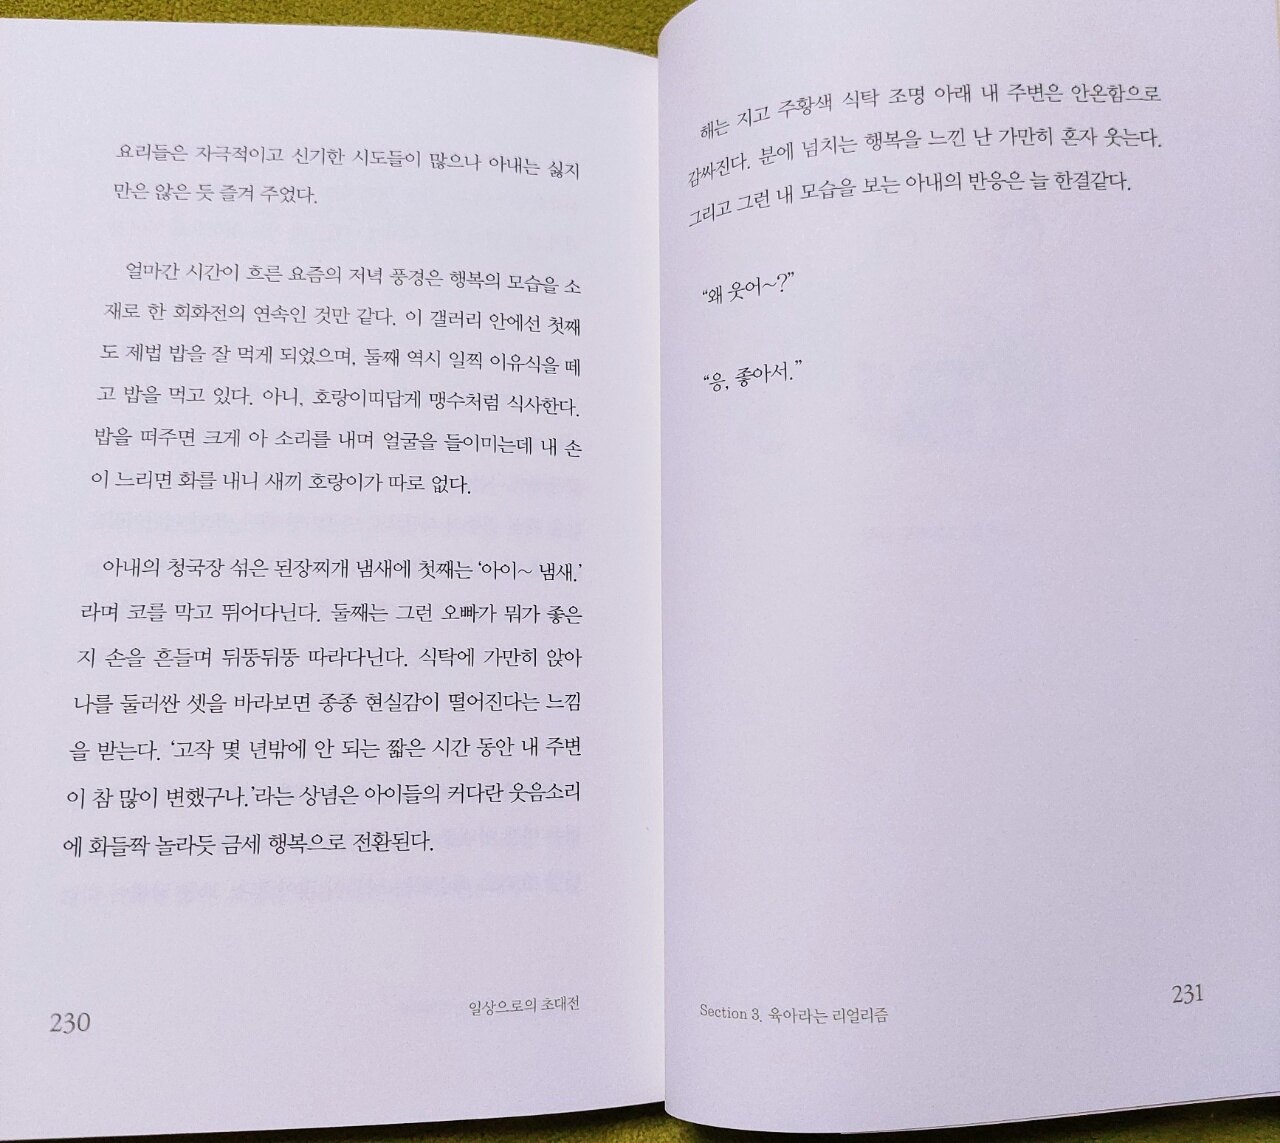 요리들은 자극적이고 신기한 시도들이 많으나 아내는 싫지
만은 않은 듯 즐겨 주었다.
얼마간 시간이 흐른 요즘의 저녁 풍경은 행복의 모습을 소
재로 한 회화전의 연속인 것만 같다. 이 갤러리 안에선 첫째
도 제법 밥을 잘 먹게 되었으며, 둘째 역시 일찍 이유식을 떼
고 밥을 먹고 있다. 아니, 호랑이띠답게 맹수처럼 식사한다.
밥을 떠주면 크게 아 소리를 내며 얼굴을 들이미는데 내 손
이 느리면 화를 내니 새끼 호랑이가 따로 없다.
아내의 청국장 섞은 된장찌개 냄새에 첫째는 ‘아이~ 냄새.’
라며 코를 막고 뛰어다닌다. 둘째는 그런 오빠가 뭐가 좋은
지 손을 흔들며 뒤뚱뒤뚱 따라다닌다. 식탁에 가만히 앉아
나를 둘러싼 셋을 바라보면 종종 현실감이 떨어진다는 느낌
을 받는다. ‘고작 몇 년밖에 안 되는 짧은 시간 동안 내 주변
이 참 많이 변했구나.’라는 상념은 아이들의 커다란 웃음소리
에 화들짝 놀라듯 금세 행복으로 전환된다.
230
일상으로의 초대전
해는 지고 주황색 식탁 조명 아래 내 주변은 안온함으로
감싸진다. 분에 넘치는 행복을 느낀 난 가만히 혼자 웃는다.
그리고 그런 내 모습을 보는 아내의 반응은 늘 한결같다.
“왜 웃어~?”
“응, 좋아서.”
Section 3. 육아라는 리얼리즘
231